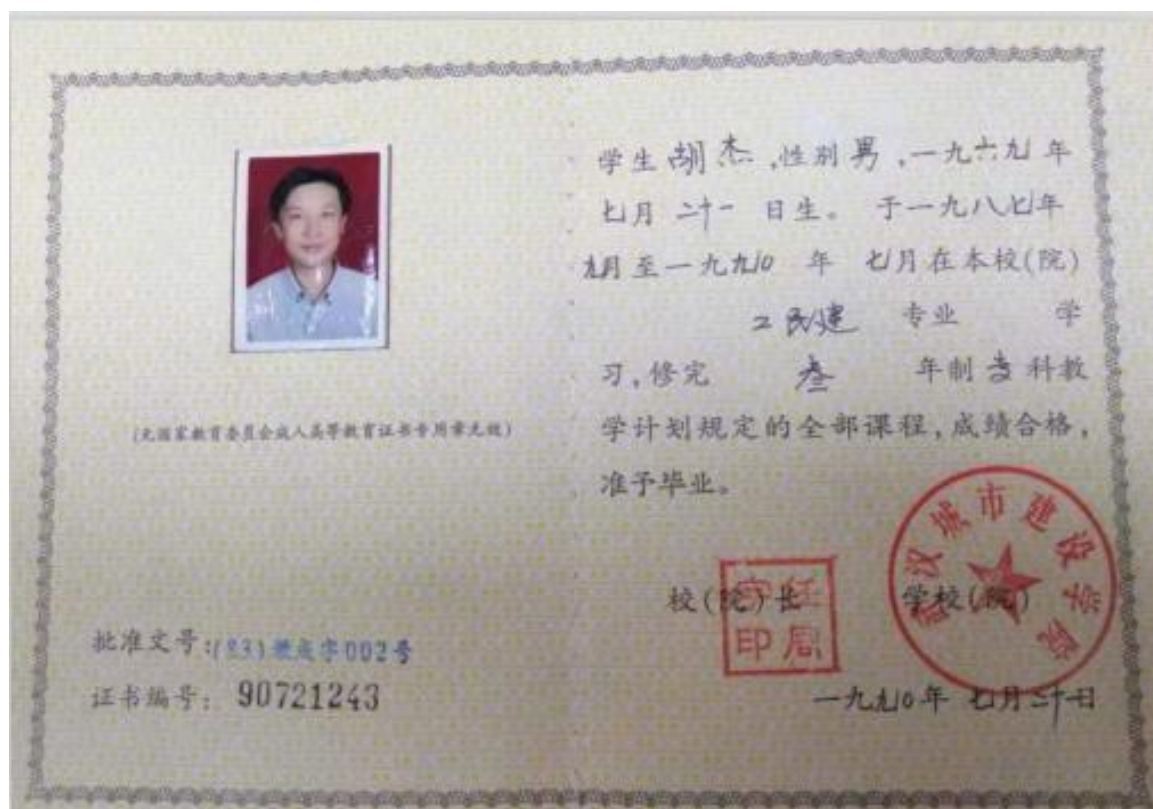 学生 胡杰 ,性别 男 ,一九六九 年
七月 二十一 日生。 于一九八七年
九月至一九九0 年 七月在本校(院)
工民建 专业 学
习,修完 叁 年制 专科教
学计划规定的全部课程,成绩合格,
准予毕业。
(无国家教育委员会成人高等教育证书专用章无效)
校(院)长 学校(院)
印
武汉城市建设学院
批准文号:(83)教成字002号
证书编号: 90721243
一九九0年 七月二十一日